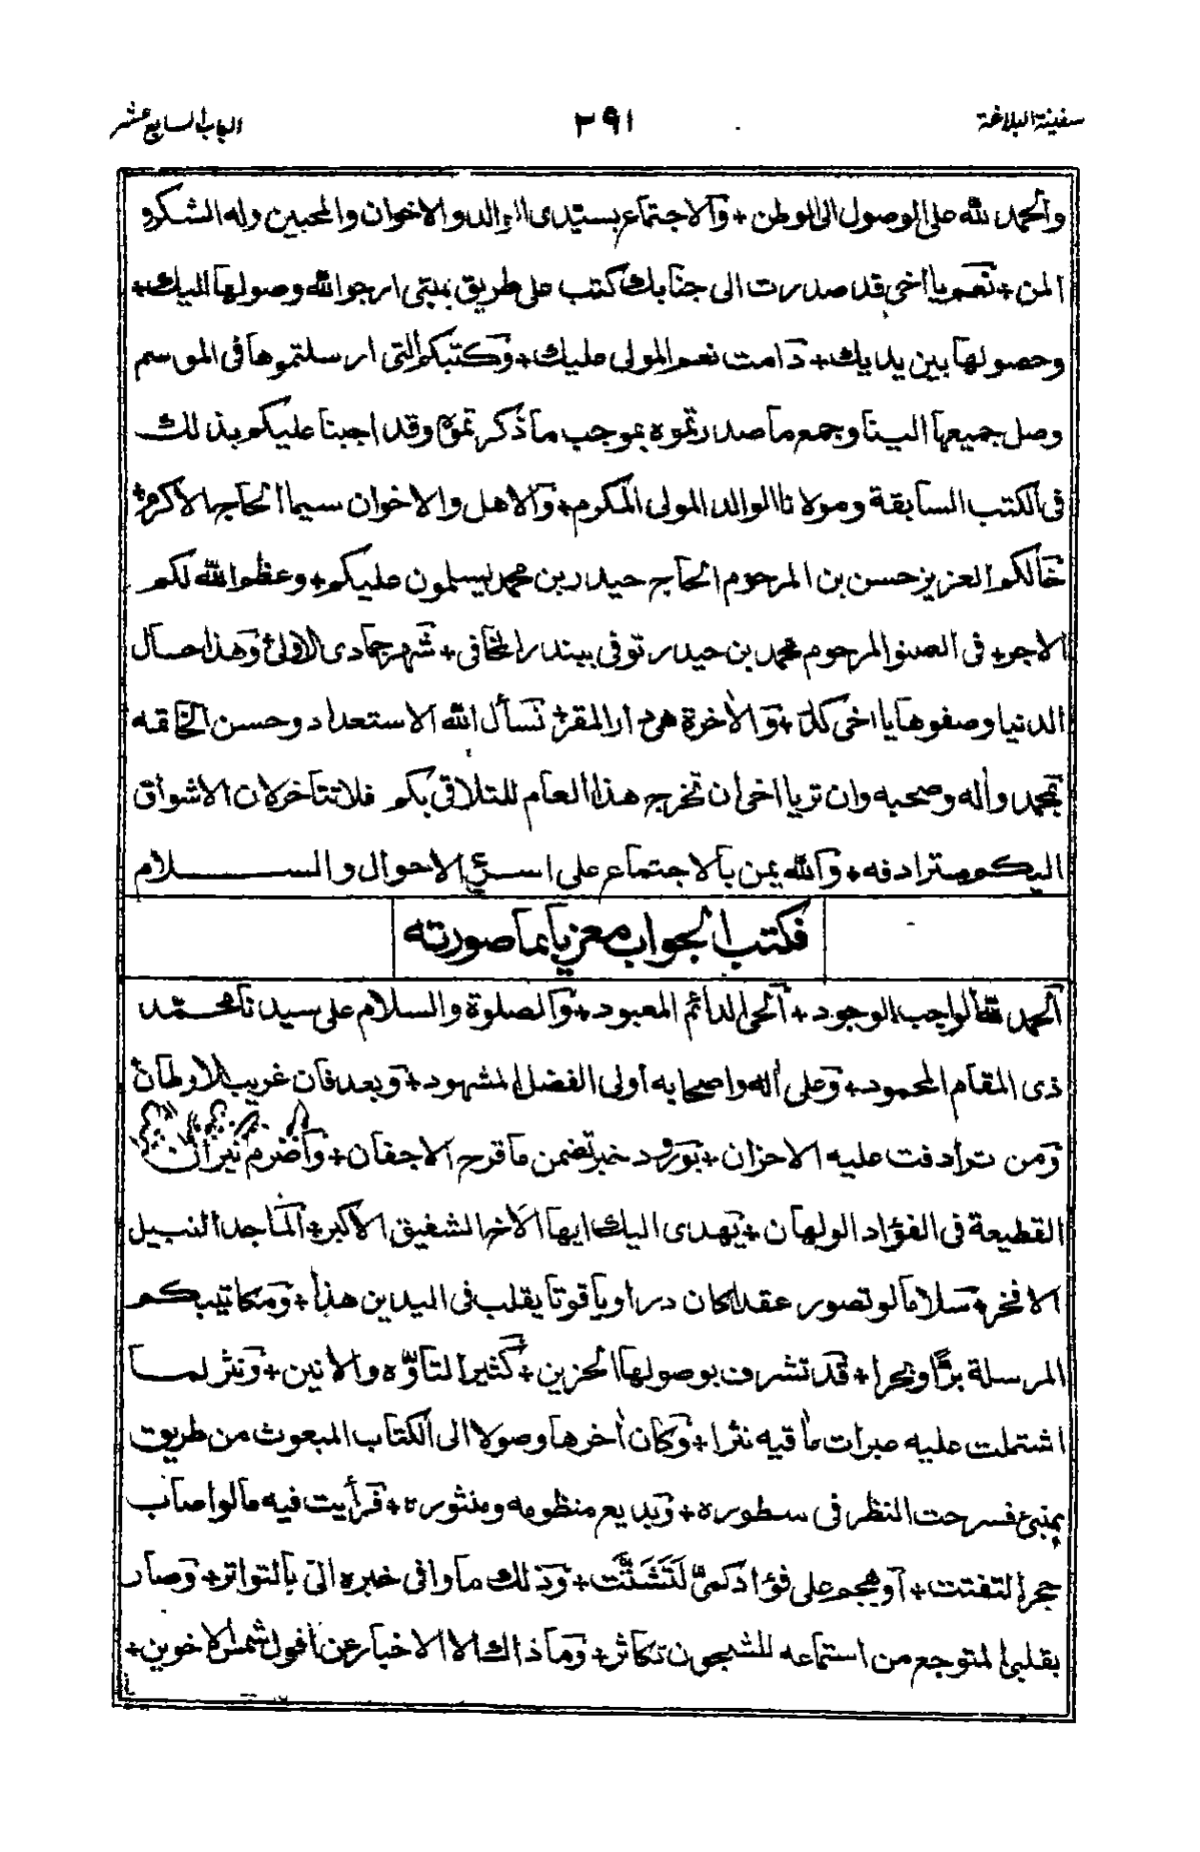 سفينة البلاغة
٢٩١
الباب السابع عشر
والحمد لله على الوصول الى الوطن + والاجتماع بسيدى الوالد والاخوان والمحبين وله الشكر و
المن + نعم يا اخى قد صدرت الى جنابك كتب على طريق بمبئى ارجو الله وصولها اليك +
وحصولها بين يديك + دامت نعم المولى عليك + وكتبكم التى ارسلتموها فى الموسم
وصل جميعها الينا وجمع ما صدرتموه بموجب ما ذكرتموه وقد اجبنا عليكم بذلك
فى الكتب السابقة ومولانا الوالد المولى المكرم + والاهل والاخوان سيما الحاج الاكرم +
خالكم العزيز حسن بن المرحوم الحاج حيدر بن محمد يسلمون عليكم + وعظم الله لكم
الاجر + فى الصنو المرحوم محمد بن حيدر توفى ببندر المخا فى + شهر جمادى الاولى وهذا حال
الدنيا وصفوها يا اخى كدر + والاخرة هى دار المقر + نسأل الله الاستعداد وحسن الخاتمه
بمحمد وآله وصحبه وان تر يا اخى ان تخرج هذا العام للتلاقى بكم فلا تتأخر لان الاشواق
اليكم مترادفه + والله يمن بالاجتماع على اسرع الاحوال والسلام
فكتب الجواب معزيا بما صورته
الحمد لله الواجب الوجود + الحى الدائم المعبود + والصلوة والسلام على سيدنا محمد
ذى المقام المحمود + وعلى آله واصحابه اولى الفضل المشهود + وبعد فان غريب الاوطان +
ومن ترادفت عليه الاحزان + بورود خبر تضمن ما قرح الاجفان + واضرم نيران
القطيعة فى الفؤاد الولهان + يهدى اليك ايها الاخ الشفيق الاكبر + الماجد النبيل
الافخر + سلاما لو تصور عقدا كان درا او ياقوتا يقلب فى اليدين هذا + ومكاتيبكم
المرسلة برّا وبحرا + قد تشرف بوصولها الحزين + كثير التأوّه والانين + ونثر لما
اشتملت عليه عبرات مأقيه نثرا + وكان أخرها وصولا الى الكتاب المبعوث من طريق
بمبئ فسرحت النظر فى سطوره + وبديع منظومه ومنثوره + فرأيت فيه ما لو اصاب
حجرا لتفتت + أو هجم على فؤاد كمىّ لَتَشَتَّت + وذلك ما وافى خبره الىّ بالتواتر + وصار
بقلبى المتوجع من استماعه للشجون تكاثر + وما ذاك الا الاخبار عن افول شمس الاخوين +